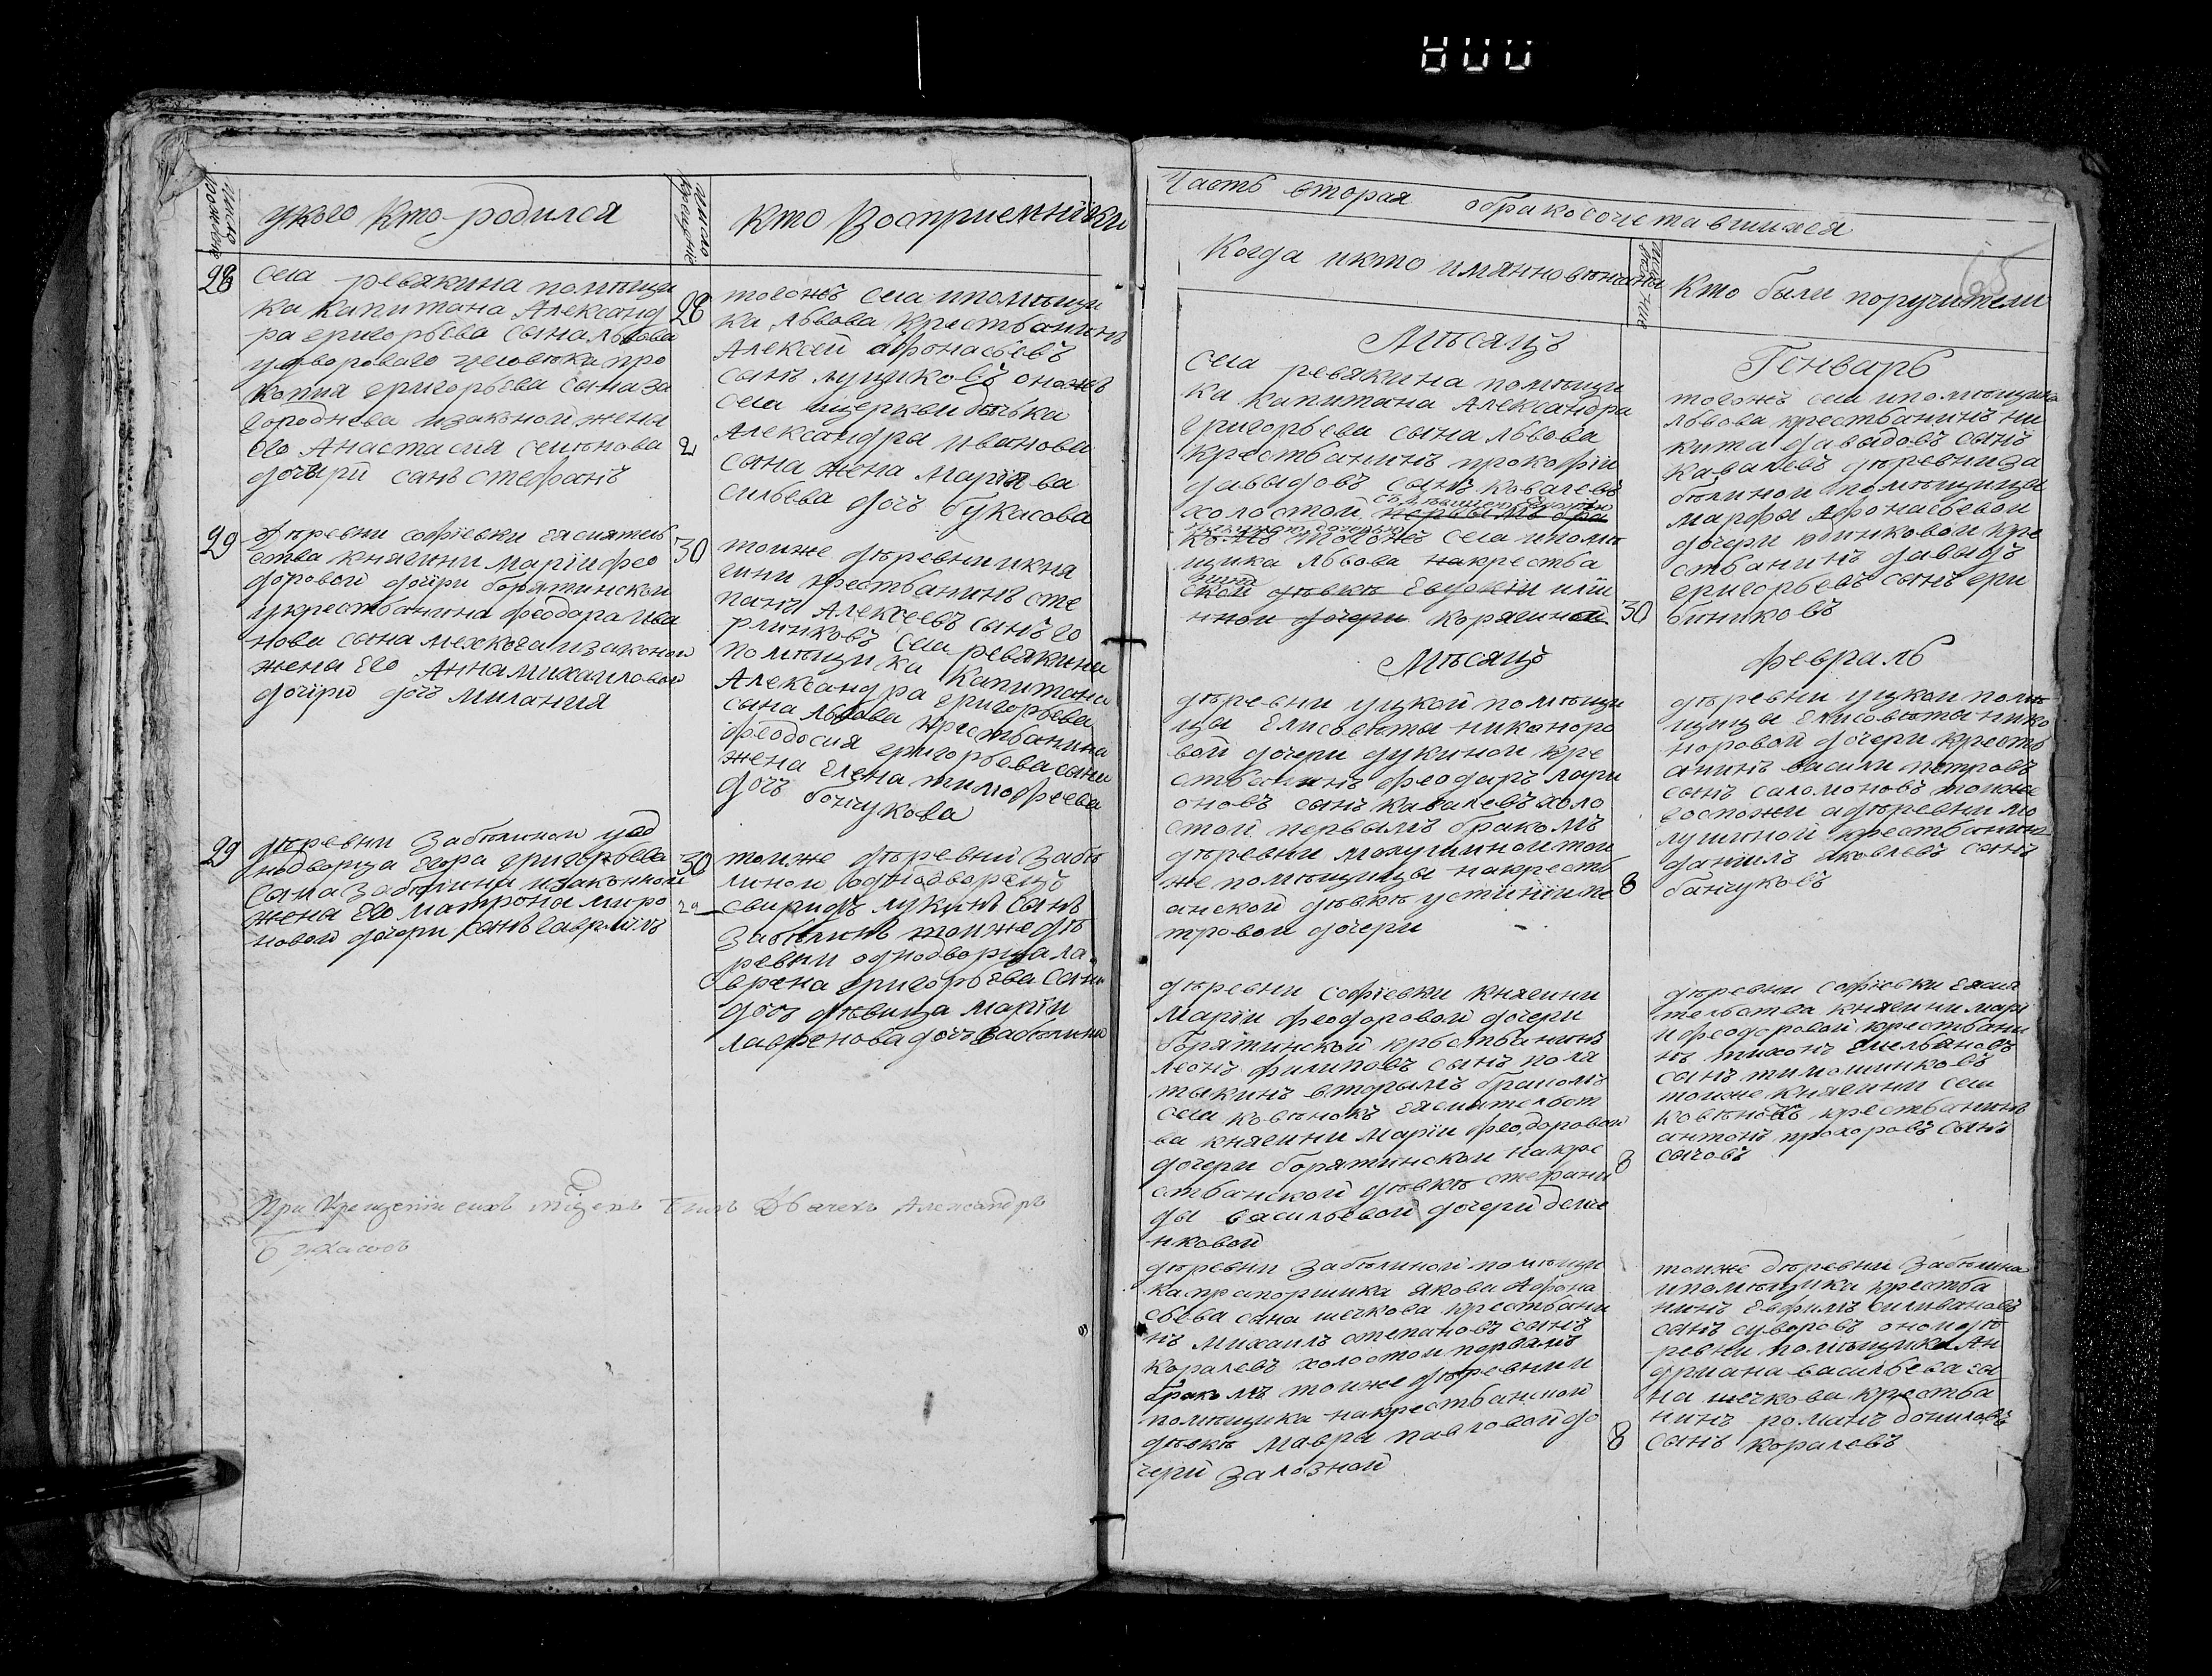 800
число рожденiе
у кого кто родился
число крещенiе
кто восприемники
28
села ревякина помѣщи
ка капитана Александ
ра григорьева сына львова
у двороваго человека про
копия григорьева сына за
городнева и законой жены
его Анастасия семионова
дочьри сынъ стефанъ
28
тогожъ села и помѣщи
ка львова крестьянинъ
Алексѣй афонасьевъ
сынъ луциковъ оногожъ
села церкви дьячька
Александра иванова
сына жена Марiя ва
сильева дочь букасова
2
29
дѣревни софiевки еясиятель
ства княгини марiи фео
доровой дочiри борятинской
у крестьянина феодора ива
нова сына и законой
жены его Анна михаиловой
дочiри дочь милания
30
тоиже дѣревни и княгини крестьянинъ сте
панъ Алексеевъ сынъ го
рлинковъ села ревякина
помѣщика капитана
Александра григорьева
сына львова крестьянина
феодосия григорьева сына
жена Елена тимофеева
дочь бончукова
29
дѣревни Забѣлиной у од
нодворца Егора григорьева
сына забѣлина и законной
жены его матрона миро
новой дочери сынъ гаврiилъ
30
тоиже дѣревни Забѣ
линой однодворецъ
свиридъ лукинъ сынъ
Забѣлинъ тоиже дѣ
ревни однодворца ла
врена григорьева сына
дочь дѣвица марiя
лавренова дочь забѣлина
При Крещенiи сихъ младенцъ былъ дьячекъ Александръ
Букасовъ
Часть вторая о бракосочетавшихся
65
Когда и кто имянно вѣнчаны
Кто были поручители
Мѣсяцъ
Генварь
села ревякина помѣщи
ка капитана Александра
григорьева сына львова
крестьянинъ прокофiи
давыдовъ сынъ ковалевъ
холостой первымъ бра
комъ тогожъ села и помѣ
щика львова на крестья
ской дѣвкѣ Евдокiи или
иной дочери корягиной
30
тогожъ села и помѣщика
львова крестьянинъ ни
кита давыдовъ сынъ
кавалевъ дѣревни за
бѣлиной помѣщицы
марфы Афонасьевой
дочери юдинковой кре
стьянинъ давыдъ
григорьевъ сынъ гри
биниковъ
Мѣсяцъ
февраль
дѣревни уцкой помѣщи
цы Елисовѣты никаноро
вой дочери дукиной кре
стьянинъ феодаръ лари
оновъ сынъ кавалевъ холо
стой первымъ бракомъ
дѣревни молушиной той
же помѣщицы на крестья
анской дѣвкѣ устинiи пе
тровой дочери
8
дѣревни уцкой помѣ
щицы Елисовѣты нико
норовой дочери кресть
анинъ василiи петровъ
сынъ саломоновъ тоиже
госпожи а дѣревни мо
лушиной крестьянинъ
данiилъ яковлевъ сынъ
банчуковъ
дѣревни софiевки княгини
Марiи феодоровой дочери
борятинской крестьянинъ
леонъ филиповъ сынъ пола
тыкинъ вторымъ бракомъ
села ковѣнокъ еясиятельст
ва княгини марiи феодоровой
дочери борятинской на кре
стьянской дѣвкѣ стефани
ды васильевой дочери деме
нковой
8
дѣревни софiевки еясия
тельства княгини марi
и феодоровой крестьяни
нъ тихонъ Емельяновъ
сынъ тимошинковъ
тоиже княгини села
ковѣнокъ крестьянинъ
антонъ прохоровъ сынъ
сычовъ
дѣревни Забѣлиной помѣщи
ка прапорщика якова Афона
сьева сына шечкова крестьяни
нъ михаилъ степановъ сынъ
королевъ холостой первымъ
бракомъ тоиже дѣревни и
помѣщика на крестьянской
дѣвкѣ мавры павловой до
чери залозной
8
тоиже дѣревни Забѣлина
и помѣщика крестья
нинъ Евфимъ силивановъ
сынъ суворовъ оной дѣ
ревни помѣщика Ан
дриана васильева сы
на шечкова крестья
нинъ романъ даниловъ
сынъ королевъ